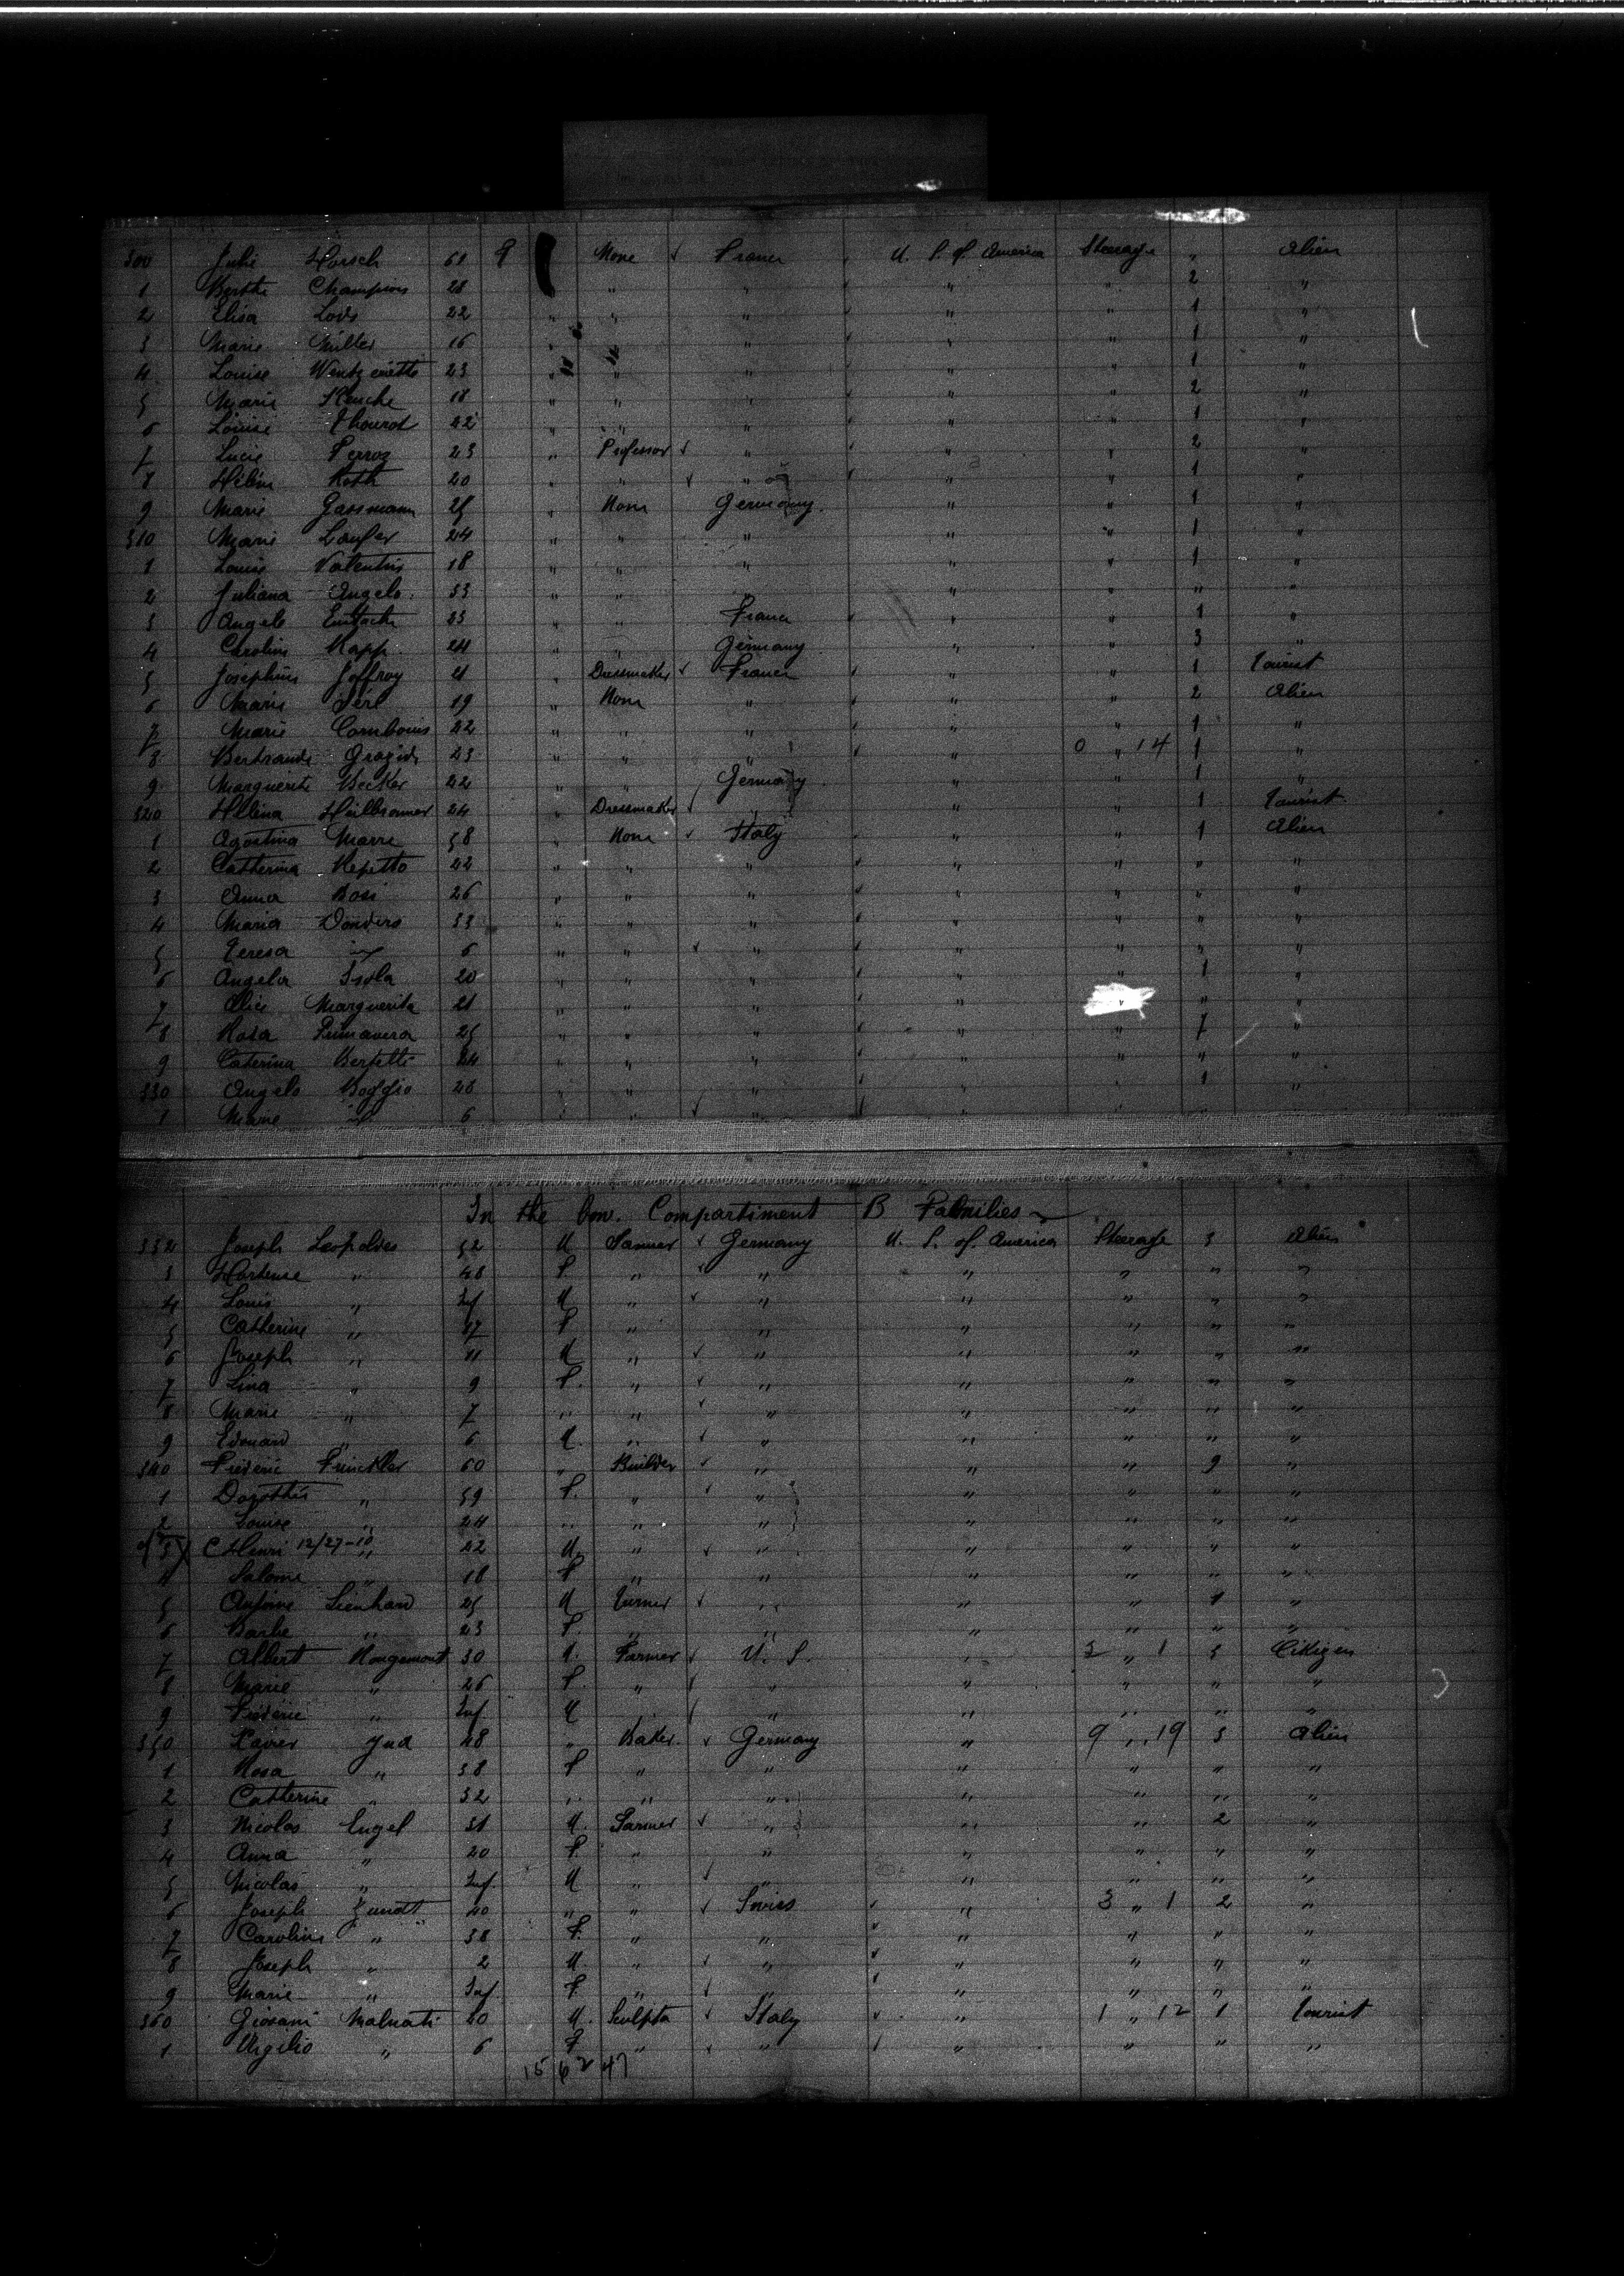 500 Julie Horsch 61 F None France U. S. of America Steerage " Alien
1 Berthe Champion 28 " " " " 2 "
2 Elisa Lods 22 " " " " " 1 "
3 Marie Müller 16 " " " " " 1 "
4 Louise 23 " " " " " 1 "
5 Marie 18 " " " " " 2 "
6 Louise Thourot 22 " " " " " 1 "
7 Lucie Perroz 23 " Professor " " " 2 "
8 Hélène Roth 20 " " " " " 1 "
9 Marie Gassmann 25 " None Germany " " 1 "
510 Marie Laufer 24 " " " " " 1 "
1 Louise Valentin 18 " " " " " 1 "
2 Juliana Angelo 33 " " " " " " "
3 Angelo 23 " " France " " 1 "
4 Caroline Kapp 24 " " Germany " " 3 "
5 Josephine Joffroy 21 " Dressmaker France " " 1 Tourist
6 Marie 19 None " " " 2 Alien
7 Marie 22 " " " " " 1 "
8 Bertrande 23 " " " " 0 " 14 1 "
9 Marguerite Becker 22 " " Germany " " 1 "
520 Helena 24 " Dressmaker " " " 1 Tourist
1 Agostina Marre 58 " None Italy " " 1 Alien
2 Catherina Repetto 42 " " " " " " "
3 Anna Bosi 26 " " " " " " "
4 Maria Dondero 33 " " " " " " "
5 Teresa " 6 " " " " " " "
6 Angela Isola 20 " " " " " 1 "
7 Alice Marguerita 21 " " " " " " "
8 Rosa Primavera 25 " " " " " 7 "
9 Caterina 24 " " " " " " "
530 Angelo Boggio 28 " " " " " 1 "
1 Marie " 6 " " " " "
In the bow. Compartiment B Families
532 Joseph Leopoldes 52 M Farmer Germany U. S. of America Steerage 3 Alien
3 Hortense " 48 F. " " " " " "
4 Louis " Inf M " " " " " "
5 Catherine " 17 F " " " " " "
6 Joseph " 11 M " " " " " "
7 Lina " 9 F. " " " " " "
8 Marie " 7 " " " " " " "
9 Edouard " 6 M. " " " " " "
540 Frederic Frinckler 60 " Builder " " " 9 "
1 Dorothée " 59 F. " " " " " "
2 Louise " 24 " " " " " " "
3 Henri 12/27-10 " 22 M. " " " " " "
4 Salome " 18 F " " " " " "
5 Antoine Lienhard 25 M Turner " " " 1 "
6 Barbe " 23 F. " " " " " "
7 Albert Rougemont 30 M. Farmer U. S. " 2 " 1 3 Citizen
8 Marie " 26 F. " " " " " "
9 Frederic " Inf M " " " " " "
550 Xavier Jud 48 " Baker Germany " 9 " 19 3 Alien
1 Rosa " 38 F " " " " " "
2 Catherine " 32 " " " " " " "
3 Nicolas Engel 31 M. Farmer " " " 2 "
4 Anna " 20 F. " " " " " "
5 Nicolas " Inf. M " " " " " "
6 Joseph Zundt 40 " " Swiss " 3 " 1 2 "
7 Caroline " 38 F. " " " " " "
8 Joseph " 2 M. " " " " " "
9 Marie " Inf F. " " " " " "
560 Giovani Malnati 40 M. Sculptor Italy " 1 " 12 1 Tourist
1 Virgilio " 6 F " " " " " "
15 62 47